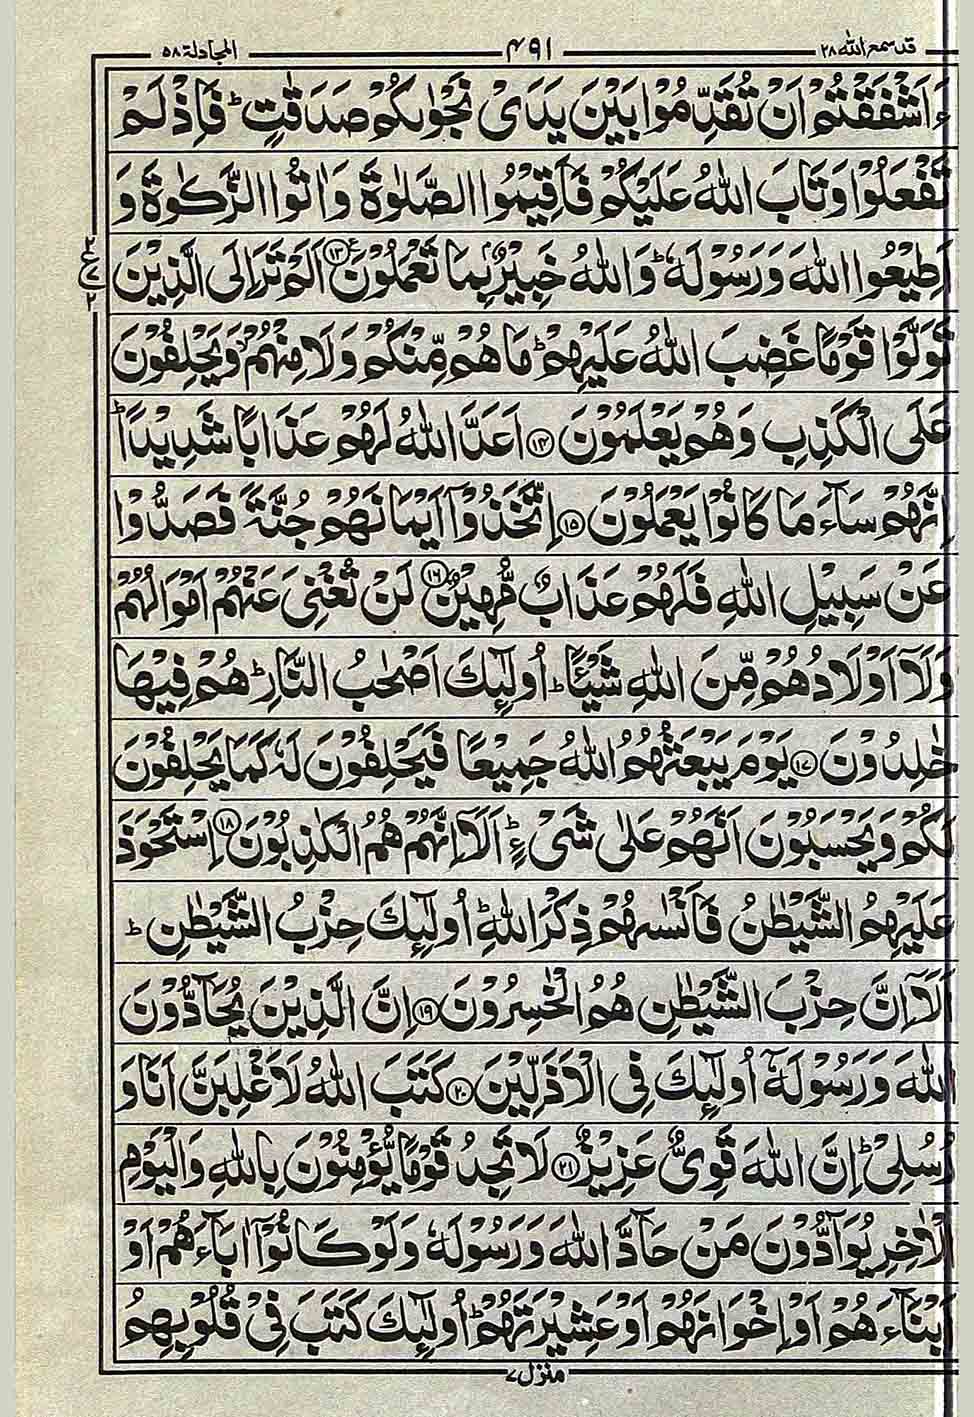 قد سمع الله ٢٨ ٤٩١ المجادلة ٥٨
ءَاَشْفَقْتُمْ اَنْ تُقَدِّمُوْا بَيْنَ يَدَىْ نَجْوٰىكُمْ صَدَقٰتٍ ؕ فَاِذْ لَمْ
تَفْعَلُوْا وَتَابَ اللّٰهُ عَلَيْكُمْ فَاَقِيْمُوا الصَّلٰوةَ وَاٰتُوا الزَّكٰوةَ وَ
اَطِيْعُوا اللّٰهَ وَرَسُوْلَهٗ ؕ وَاللّٰهُ خَبِيْرٌۢ بِمَا تَعْمَلُوْنَ ﴿١٣﴾ اَلَمْ تَرَ اِلَى الَّذِيْنَ
تَوَلَّوْا قَوْمًا غَضِبَ اللّٰهُ عَلَيْهِمْ ؕ مَا هُمْ مِّنْكُمْ وَلَا مِنْهُمْ ۙ وَيَحْلِفُوْنَ
عَلَى الْكَذِبِ وَهُمْ يَعْلَمُوْنَ ﴿١٤﴾ اَعَدَّ اللّٰهُ لَهُمْ عَذَابًا شَدِيْدًا ؕ
اِنَّهُمْ سَآءَ مَا كَانُوْا يَعْمَلُوْنَ ﴿١٥﴾ اِتَّخَذُوْۤا اَيْمَانَهُمْ جُنَّةً فَصَدُّوْا
عَنْ سَبِيْلِ اللّٰهِ فَلَهُمْ عَذَابٌ مُّهِيْنٌ ﴿١٦﴾ لَنْ تُغْنِىَ عَنْهُمْ اَمْوَالُهُمْ
وَلَاۤ اَوْلَادُهُمْ مِّنَ اللّٰهِ شَيْئًا ؕ اُولٰٓئِكَ اَصْحٰبُ النَّارِ ؕ هُمْ فِيْهَا
خٰلِدُوْنَ ﴿١٧﴾ يَوْمَ يَبْعَثُهُمُ اللّٰهُ جَمِيْعًا فَيَحْلِفُوْنَ لَهٗ كَمَا يَحْلِفُوْنَ
لَكُمْ وَيَحْسَبُوْنَ اَنَّهُمْ عَلٰى شَىْءٍ ؕ اَلَاۤ اِنَّهُمْ هُمُ الْكٰذِبُوْنَ ﴿١٨﴾ اِسْتَحْوَذَ
عَلَيْهِمُ الشَّيْطٰنُ فَاَنْسٰىهُمْ ذِكْرَ اللّٰهِ ؕ اُولٰٓئِكَ حِزْبُ الشَّيْطٰنِ ؕ
اَلَاۤ اِنَّ حِزْبَ الشَّيْطٰنِ هُمُ الْخٰسِرُوْنَ ﴿١٩﴾ اِنَّ الَّذِيْنَ يُحَآدُّوْنَ
اللّٰهَ وَرَسُوْلَهٗۤ اُولٰٓئِكَ فِى الْاَذَلِّيْنَ ﴿٢٠﴾ كَتَبَ اللّٰهُ لَاَغْلِبَنَّ اَنَا وَ
رُسُلِىْ ؕ اِنَّ اللّٰهَ قَوِىٌّ عَزِيْزٌ ﴿٢١﴾ لَا تَجِدُ قَوْمًا يُّؤْمِنُوْنَ بِاللّٰهِ وَالْيَوْمِ
الْاٰخِرِ يُوَآدُّوْنَ مَنْ حَآدَّ اللّٰهَ وَرَسُوْلَهٗ وَلَوْ كَانُوْۤا اٰبَآءَهُمْ اَوْ
اَبْنَآءَهُمْ اَوْ اِخْوَانَهُمْ اَوْ عَشِيْرَتَهُمْ ؕ اُولٰٓئِكَ كَتَبَ فِىْ قُلُوْبِهِمُ
منزل ٧